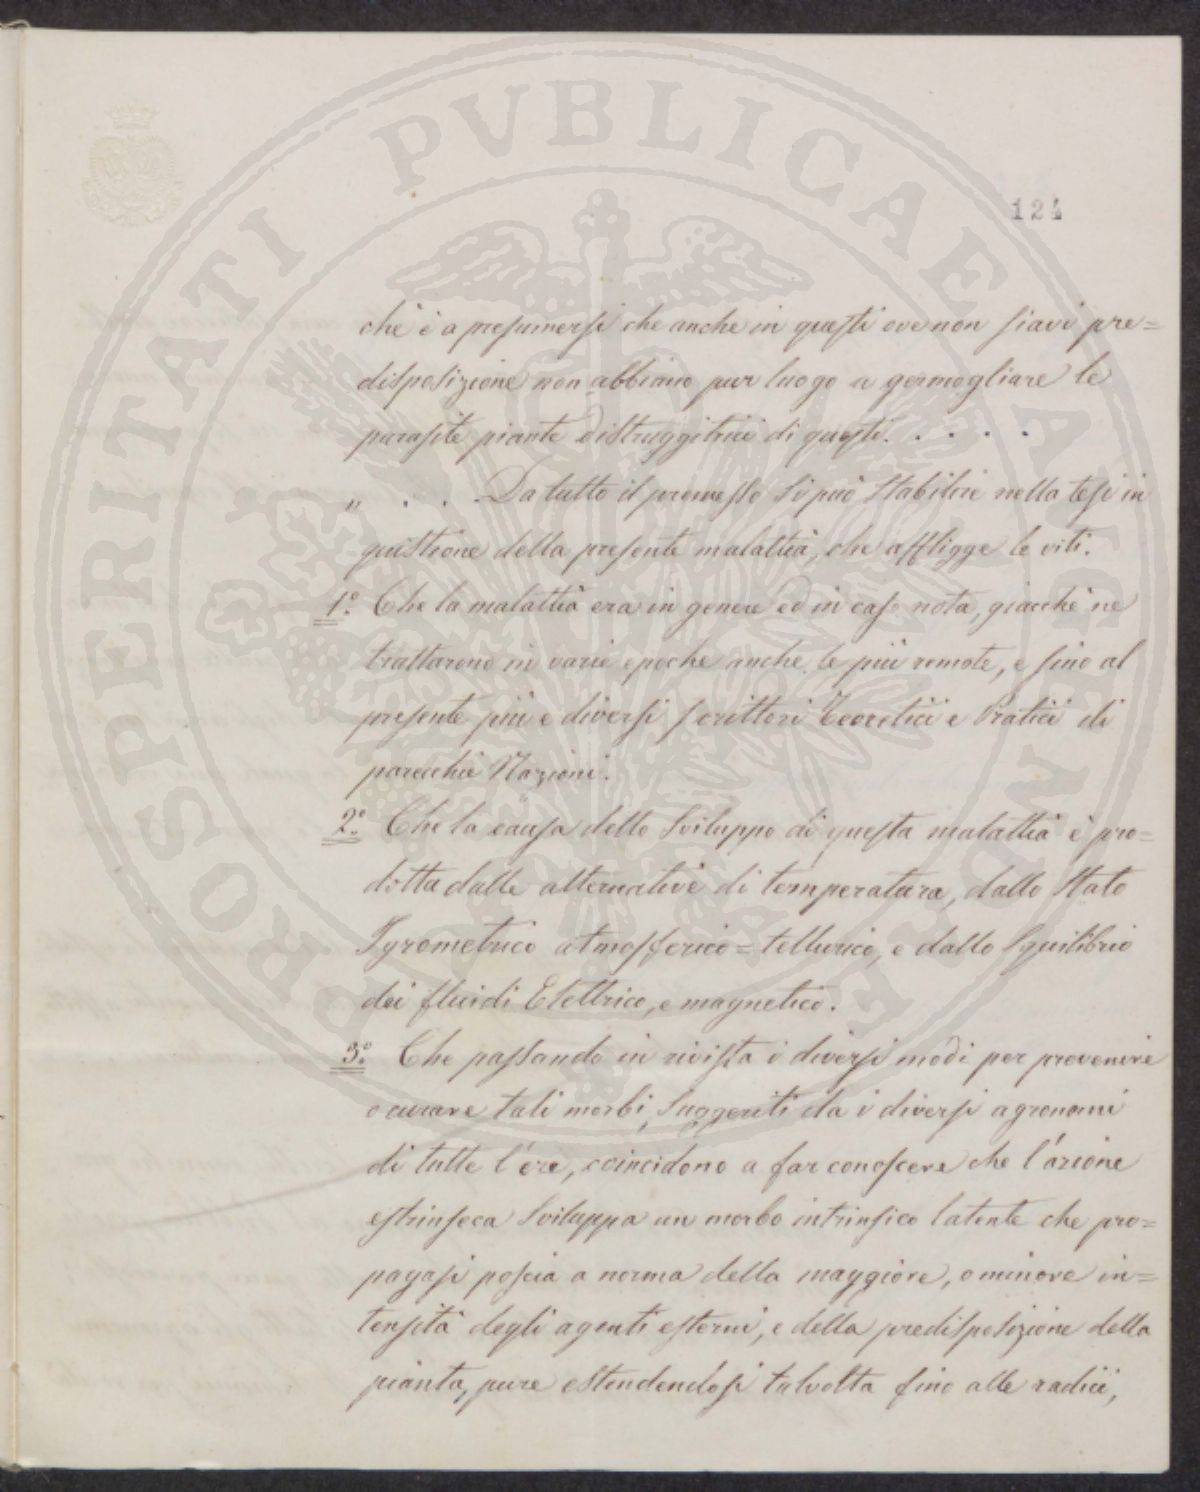 PROSPERITATI PVBLICAE AVGENDAE
124
chè è a presumersi che anche in questi ove non siavi pre=
disposizione non abbiano pur luogo a germogliare le
parasite piante distruggitrici di questi. . . . .
„ . . . Da tutto il premesso si può stabilire nella tesi in
quistione della presente malattia, che affligge le viti.
1.° Che la malattia era in genere ed in caso nota, giacchè ne
trattarono in varie epoche anche le più remote, e sino al
presente più e diversi scrittori Teoretici e Pratici di
parecchie Nazioni.
2.° Che la causa dello sviluppo di questa malattia è pro=
dotta dalle alternative di temperatura, dallo stato
Igrometrico atmosferico=tellurico, e dallo squilibrio
dei fluidi Elettrico, e magnetico.
3.° Che passando in rivista i diversi modi per prevenire
o curare tali morbi, suggeriti da i diversi agronomi
di tutte l'ere, coincidono a far conoscere che l'azione
estrinseca sviluppa un morbo intrinsico latente che pro=
pagasi poscia a norma della maggiore, o minore in=
tensità degli agenti esterni, e della predisposizione della
pianta, pure estendendosi talvolta fino alle radici,